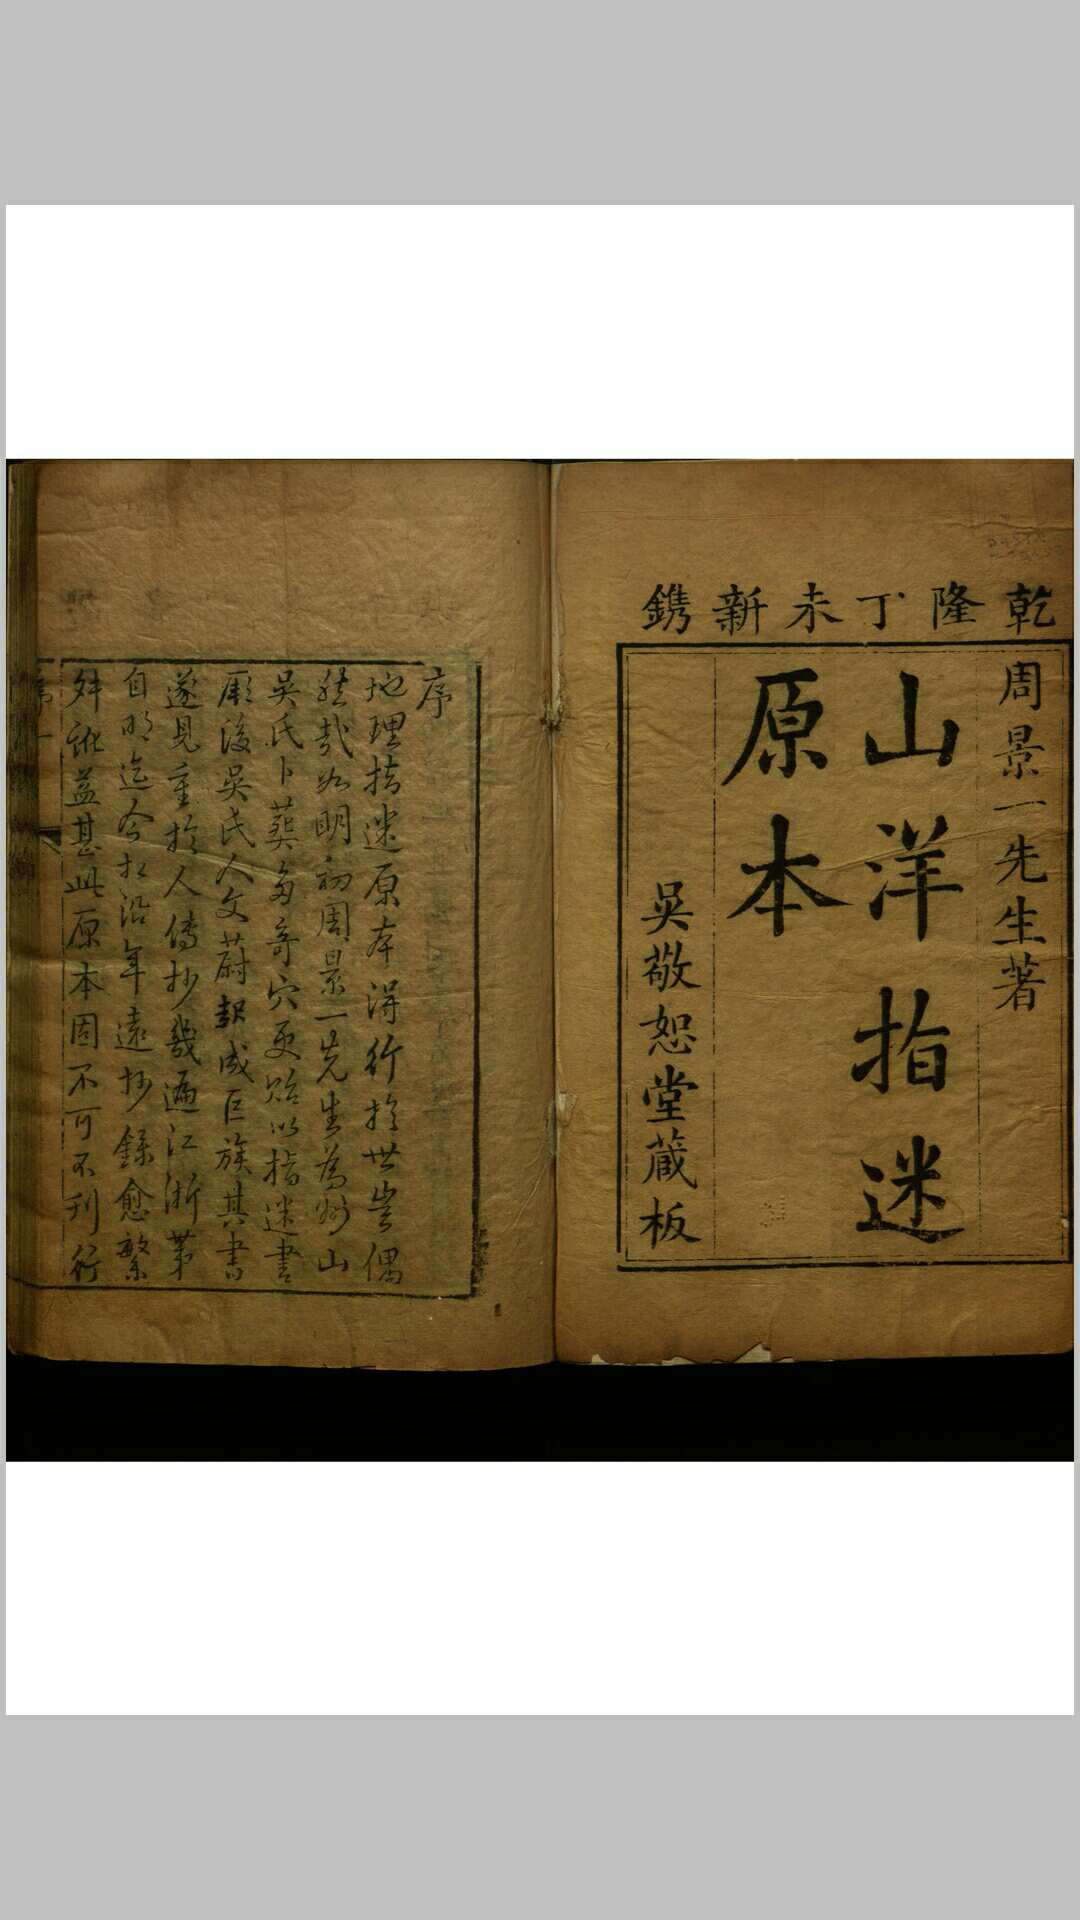 乾隆丁未新鐫
周景一先生著
山洋指迷
原本
吳敬恕堂藏板
序
地理指迷原本得行於世豈偶
然哉始明初周景一先生為吾山
吳氏卜葬多奇穴更貽以指迷書
厥後吳氏人文蔚起成巨族其書
遂見重於人傳抄幾遍江浙第
自明迄今相沿年遠抄錄愈繁
舛訛益甚此原本固不可不刊行
序